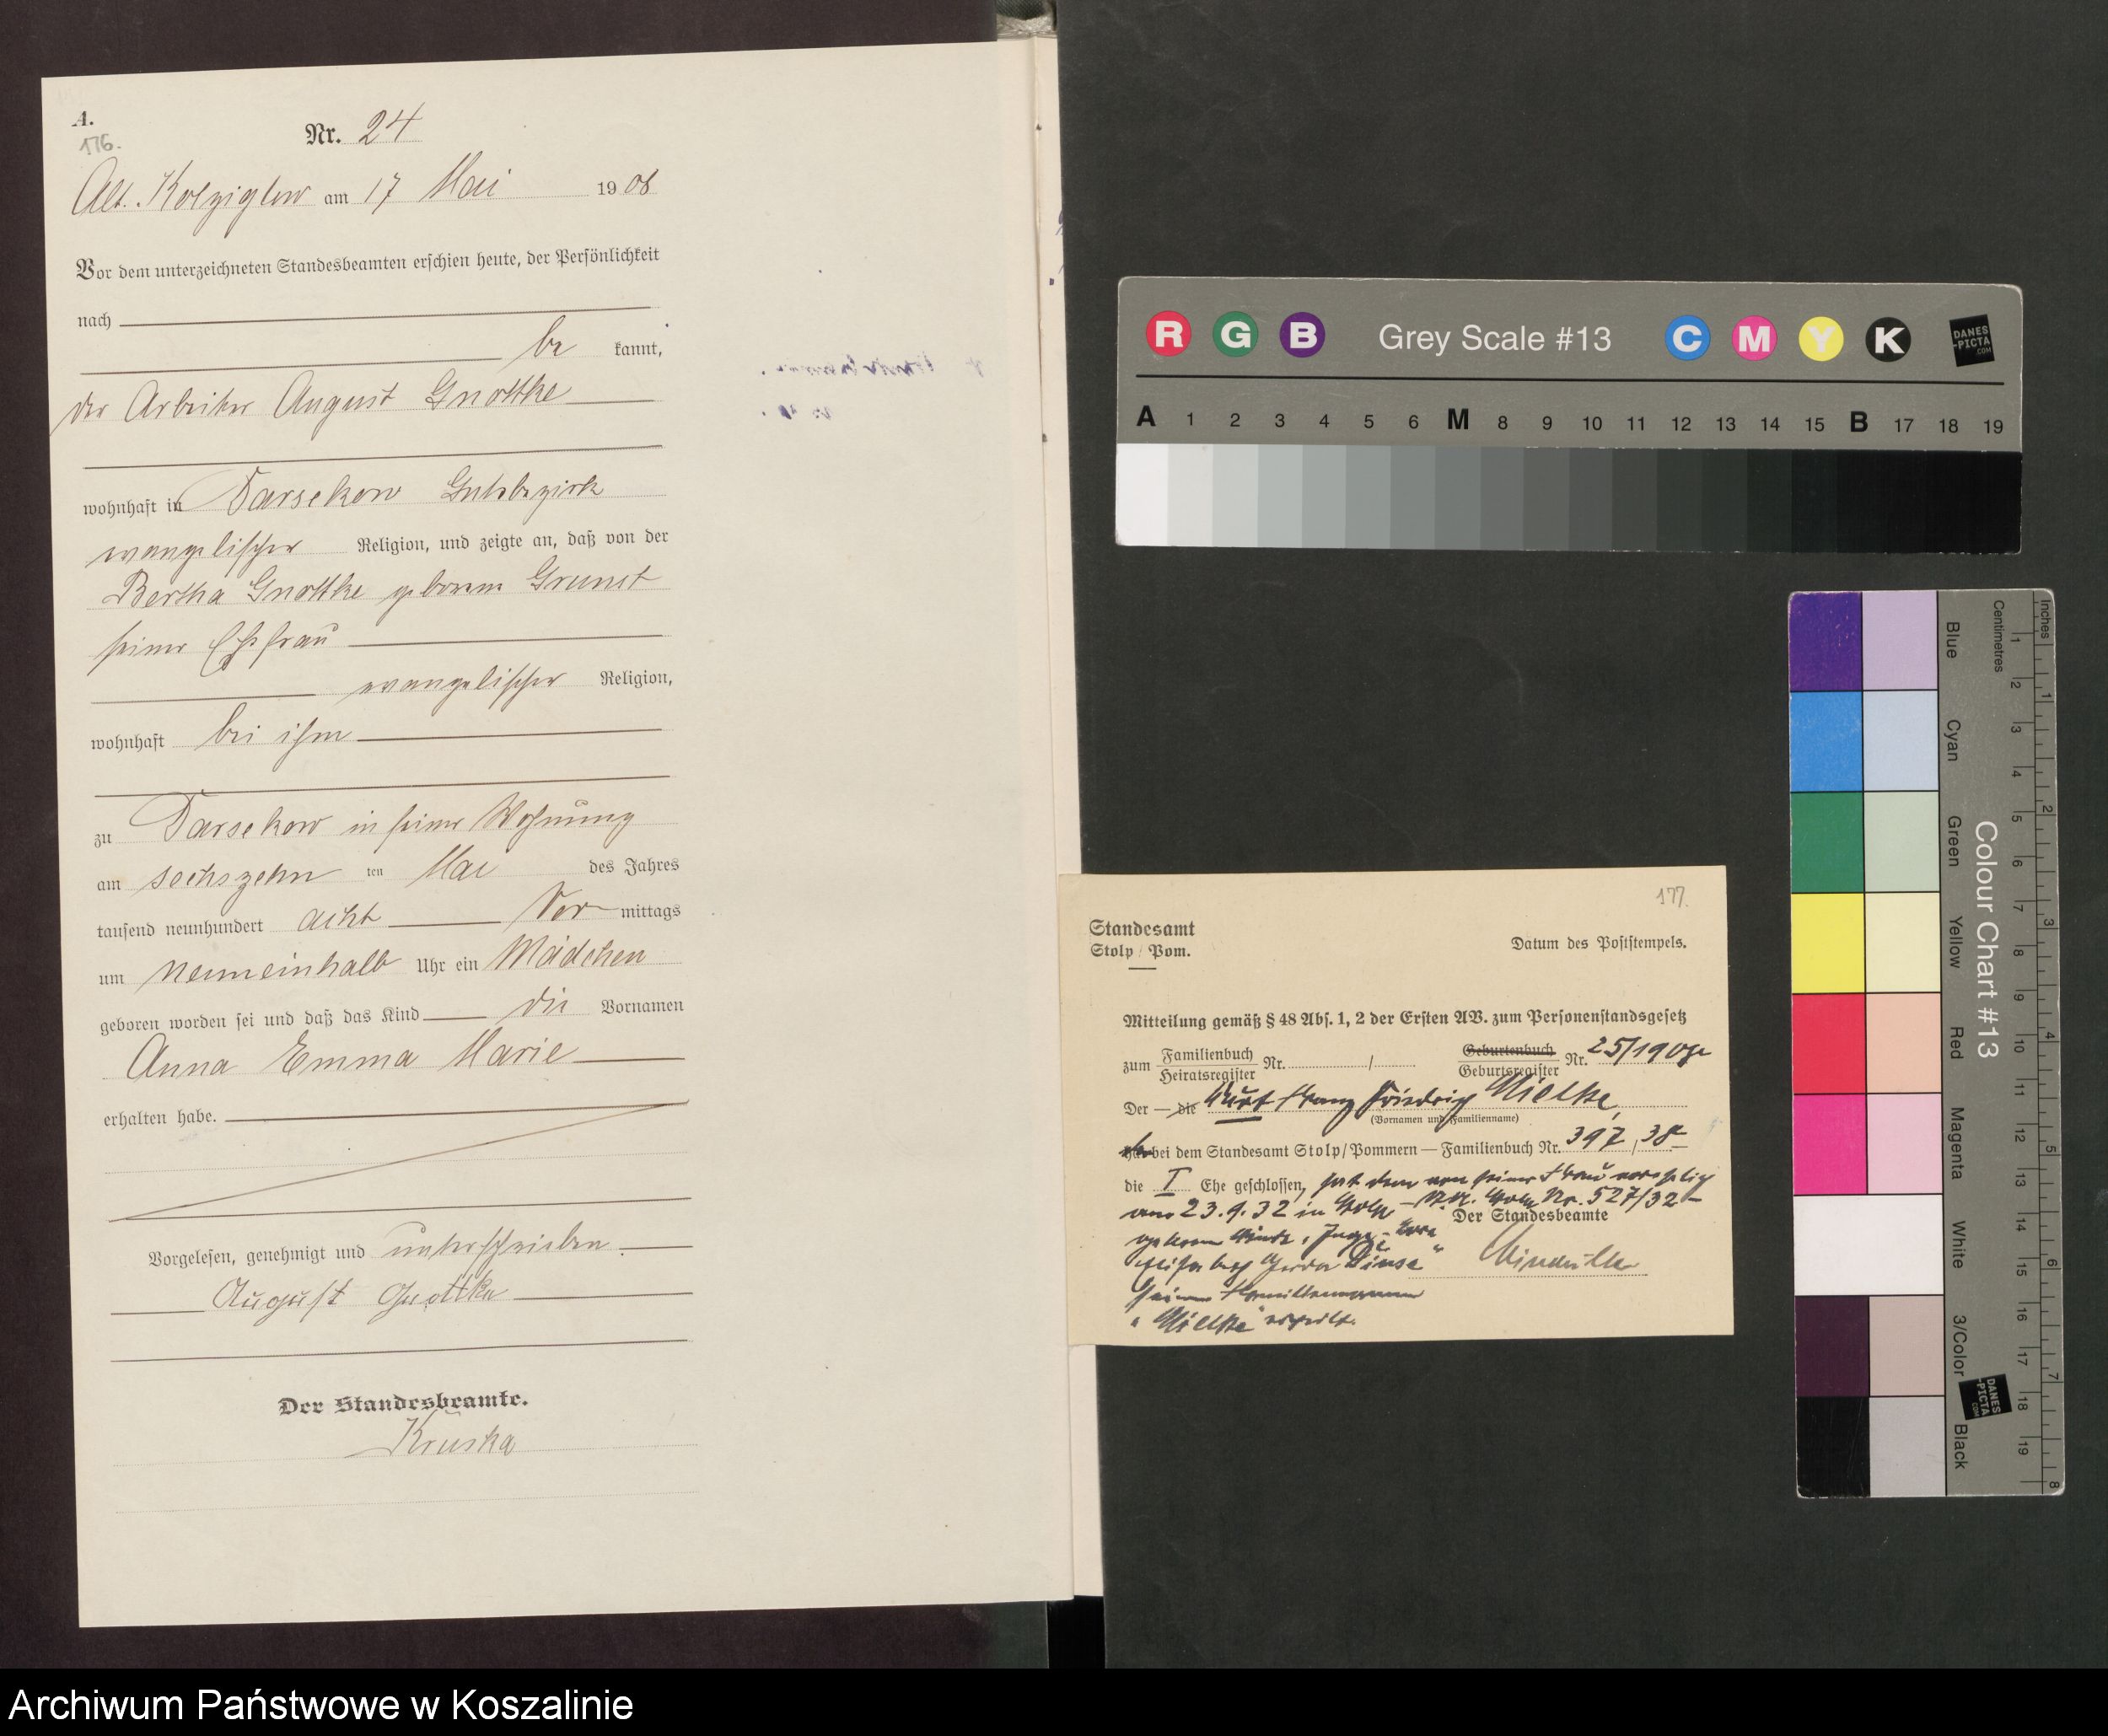 A.
176.
Nr. 24
Alt. Kolziglow am 17 Mai 1908
Vor dem unterzeichneten Standesbeamten erschien heute, der Persönlichkeit
nach
be kannt,
der Arbeiter August Gnottke
wohnhaft in Darsekow Gutsbezirk
evangelischer Religion, und zeigte an, daß von der
Bertha Gnottke geborene Grunst
seiner Ehefrau
evangelischer Religion,
wohnhaft bei ihm
zu Darsekow in seiner Wohnung
am sechszehn ten Mai des Jahres
tausend neunhundert acht Vor mittags
um neuneinhalb Uhr ein Mädchen
geboren worden sei und daß das Kind die Vornamen
Anna Emma Marie
erhalten habe.
Vorgelesen, genehmigt und unterschrieben
August Gnottke
Der Standesbeamte.
Kruska
R G B Grey Scale #13 C M Y K DANES-PICTA.COM
A 1 2 3 4 5 6 M 8 9 10 11 12 13 14 15 B 17 18 19
177.
Standesamt
Stolp / Pom.
Datum des Poststempels.
Mitteilung gemäß § 48 Abs. 1, 2 der Ersten AV. zum Personenstandsgesetz
zum Familienbuch Nr. / Geburtenbuch Nr. 25/1908
Heiratsregister Geburtsregister
Der — die Kurt Franz Friedrich Mielke
(Vornamen und Familienname)
bei dem Standesamt Stolp/Pommern — Familienbuch Nr. 397, 38
die I Ehe geschlossen, hat dem von seiner Frau vorehelich
am 23.9.32 in Stolp Nr. 527/32 –
Der Standesbeamte
geborenen Kinde „Inge-
Gerda
seinen Familiennamen
„Mielke" erteilt.
Inches
Centimetres
1 2 3 4 5 6 7 8 9 10 11 12 13 14 15 16 17 18 19
1 2 3 4 5 6 7 8
Colour Chart #13
Blue
Cyan
Green
Yellow
Red
Magenta
White
3/Color
Black
DANES-PICTA.COM
Archiwum Państwowe w Koszalinie